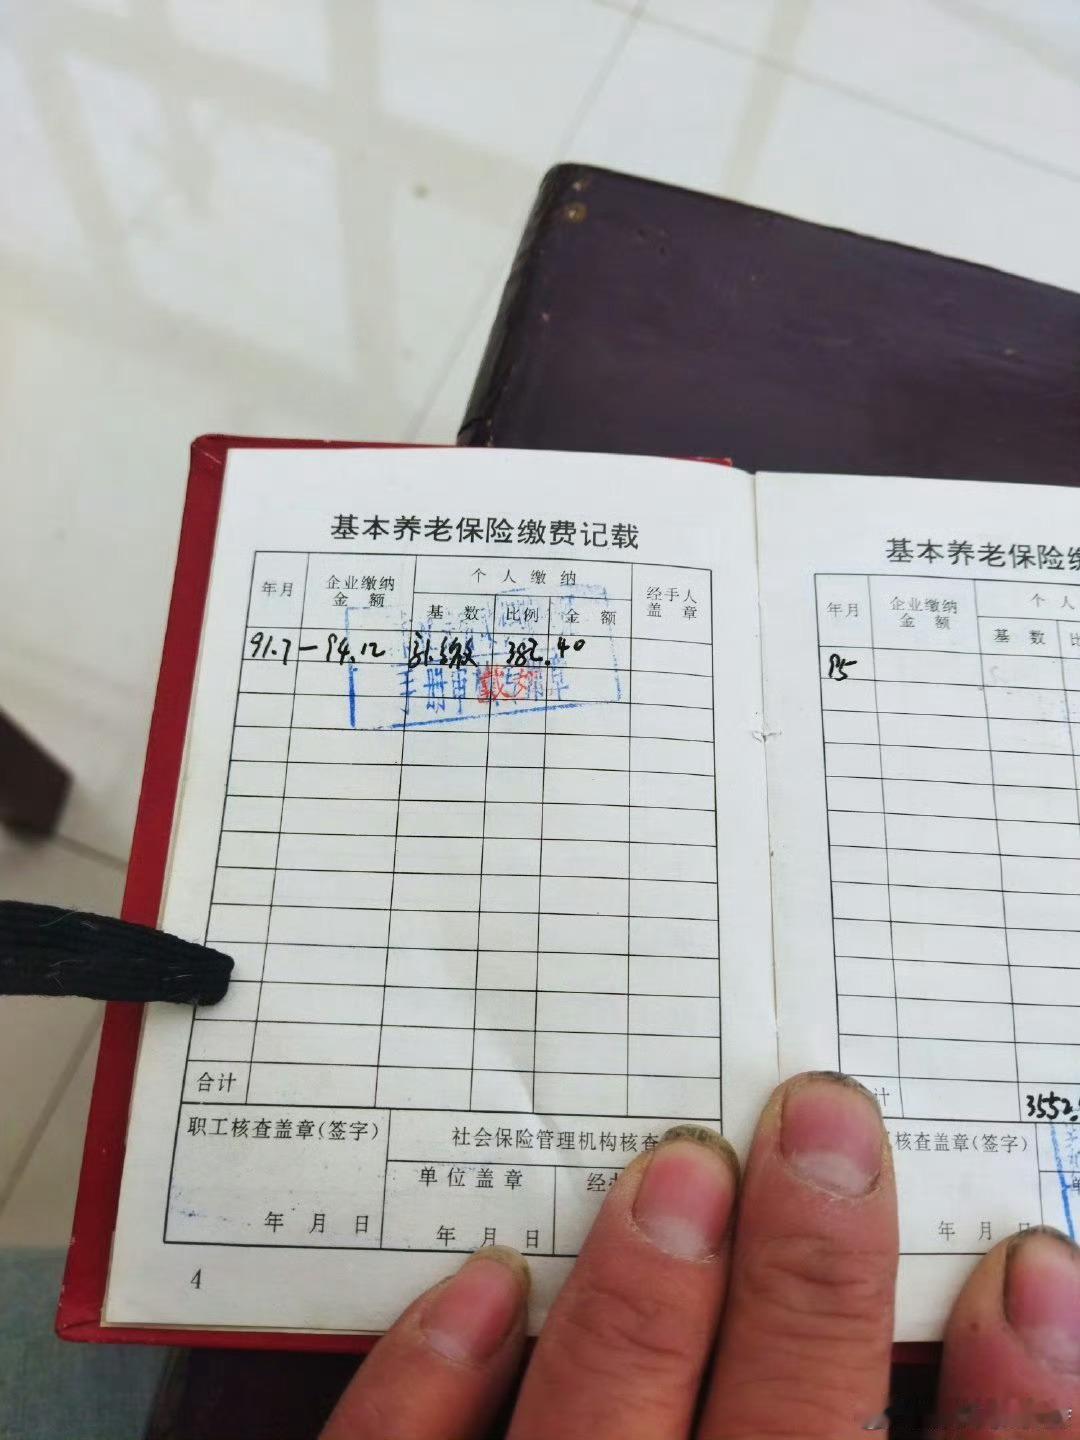 基本养老保险缴费记载
年月
企业缴纳
金 额
个 人 缴 纳
基 数
比例
金 额
经手人
盖 章
91.7—94.12 382.40
合计
职工核查盖章(签字)
年 月 日
社会保险管理机构核查
单位盖章
年 月 日
4
基本养老保险
年月
企业缴纳
金 额
个 人
基 数
95
计
3552.
核查盖章(签字)
年 月